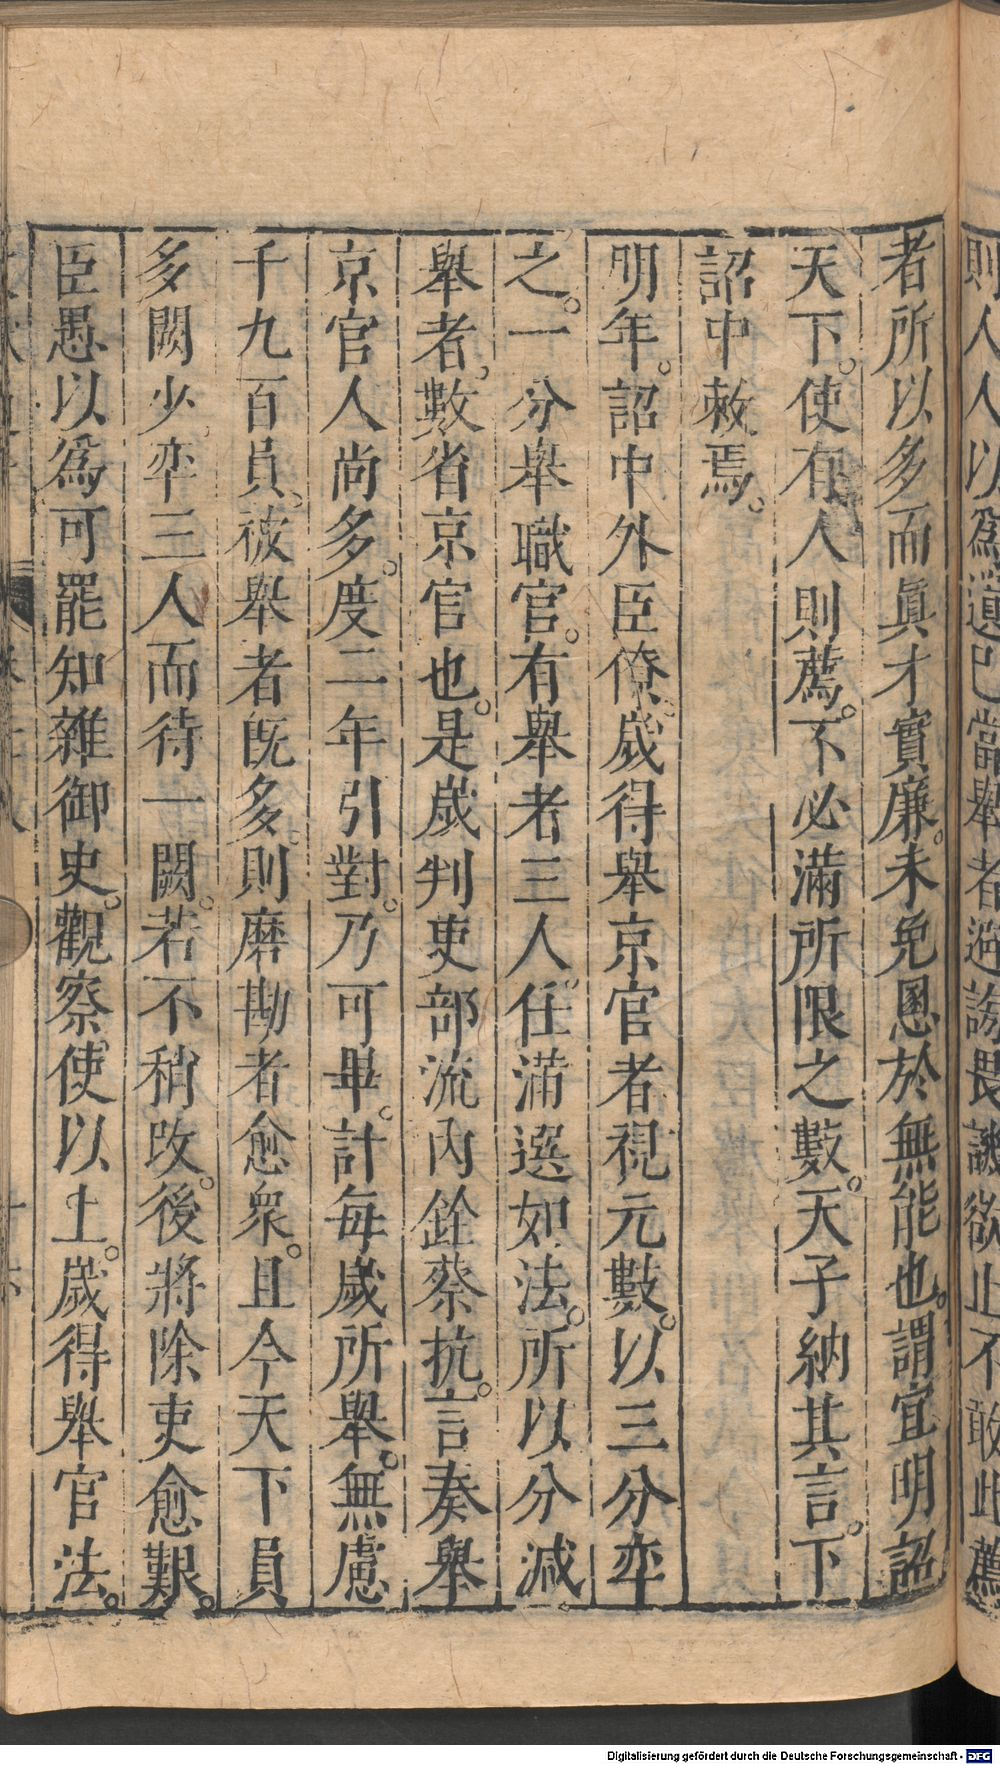 則人人以爲遺已當舉者避謗畏譏欲止不敢此薦
者所以多而眞才實廉。未免慁於無能也。謂宜明詔
天下。使有人則薦。不必滿所限之數。天子納其言。下
詔中敕焉。
明年。詔中外臣僚。歲得舉京官者視元數。以三分率
之。一分舉職官。有舉者三人。任滿選如法。所以分減
舉者。數省京官也。是歲判吏部流內銓蔡抗。言奏舉
京官人尚多。度二年引對。乃可畢。計每歲所舉。無慮
千九百員。被舉者旣多。則磨勘者愈衆。且今天下員
多闕少。率三人而待一闕。若不稍改。後將除吏愈艱。
臣愚以爲可罷知雜御史。觀察使以上。歲得舉官法。
Digitalisierung gefördert durch die Deutsche Forschungsgemeinschaft - DFG